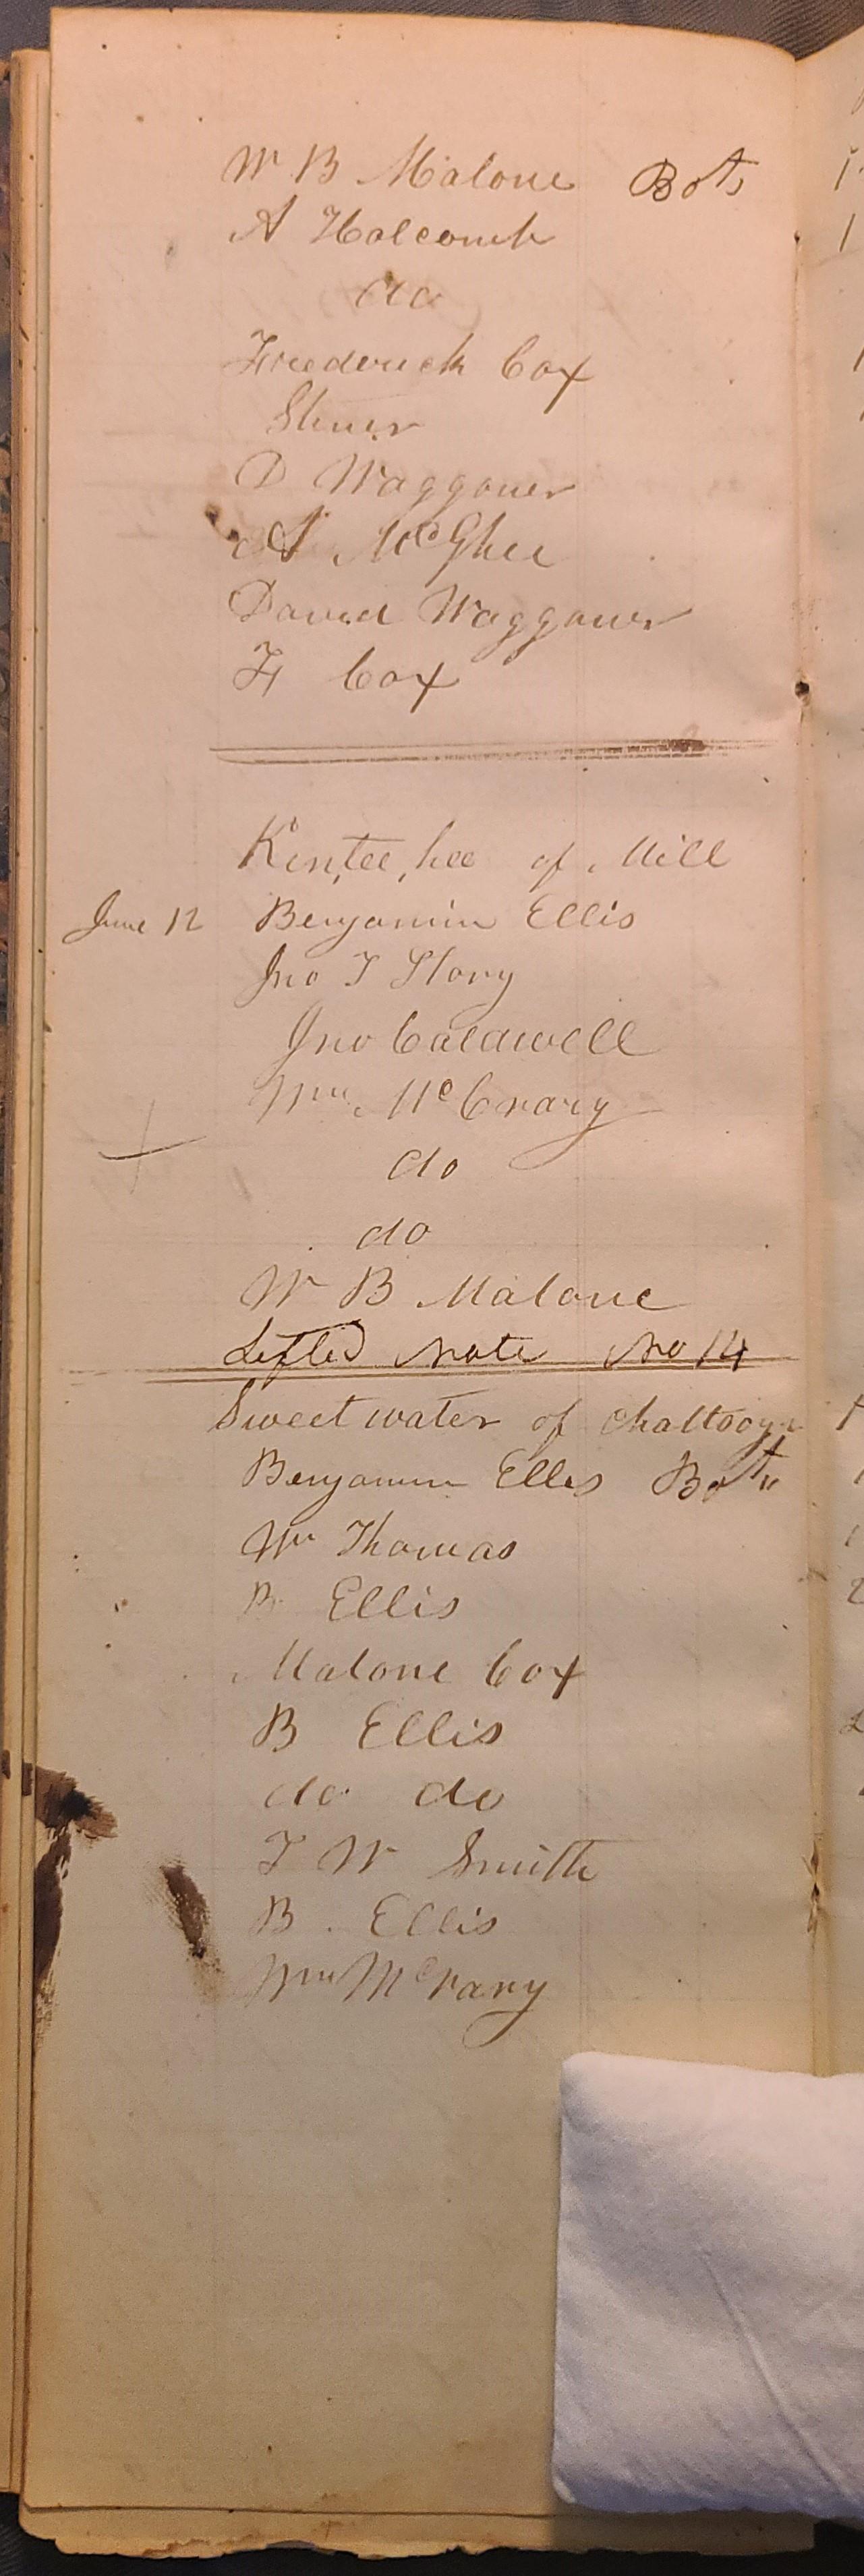 W B Malone Bot,
A Holcomb
do
Frederick Cox
D Waggoner
A McGhee
David Waggoner
F Cox
Kin,tee,hee of Mill
June 12 Benjamin Ellis
Jno T Story
Jno Caldwell
Wm McCrary
do
do
W B Malone
Lifted Note No 14
Sweet water of Chattooga
Benjamin Ellis Bot"
Wm Thomas
B Ellis
Malone Cox
B Ellis
do do
T W Smith
B. Ellis
Wm McCrary